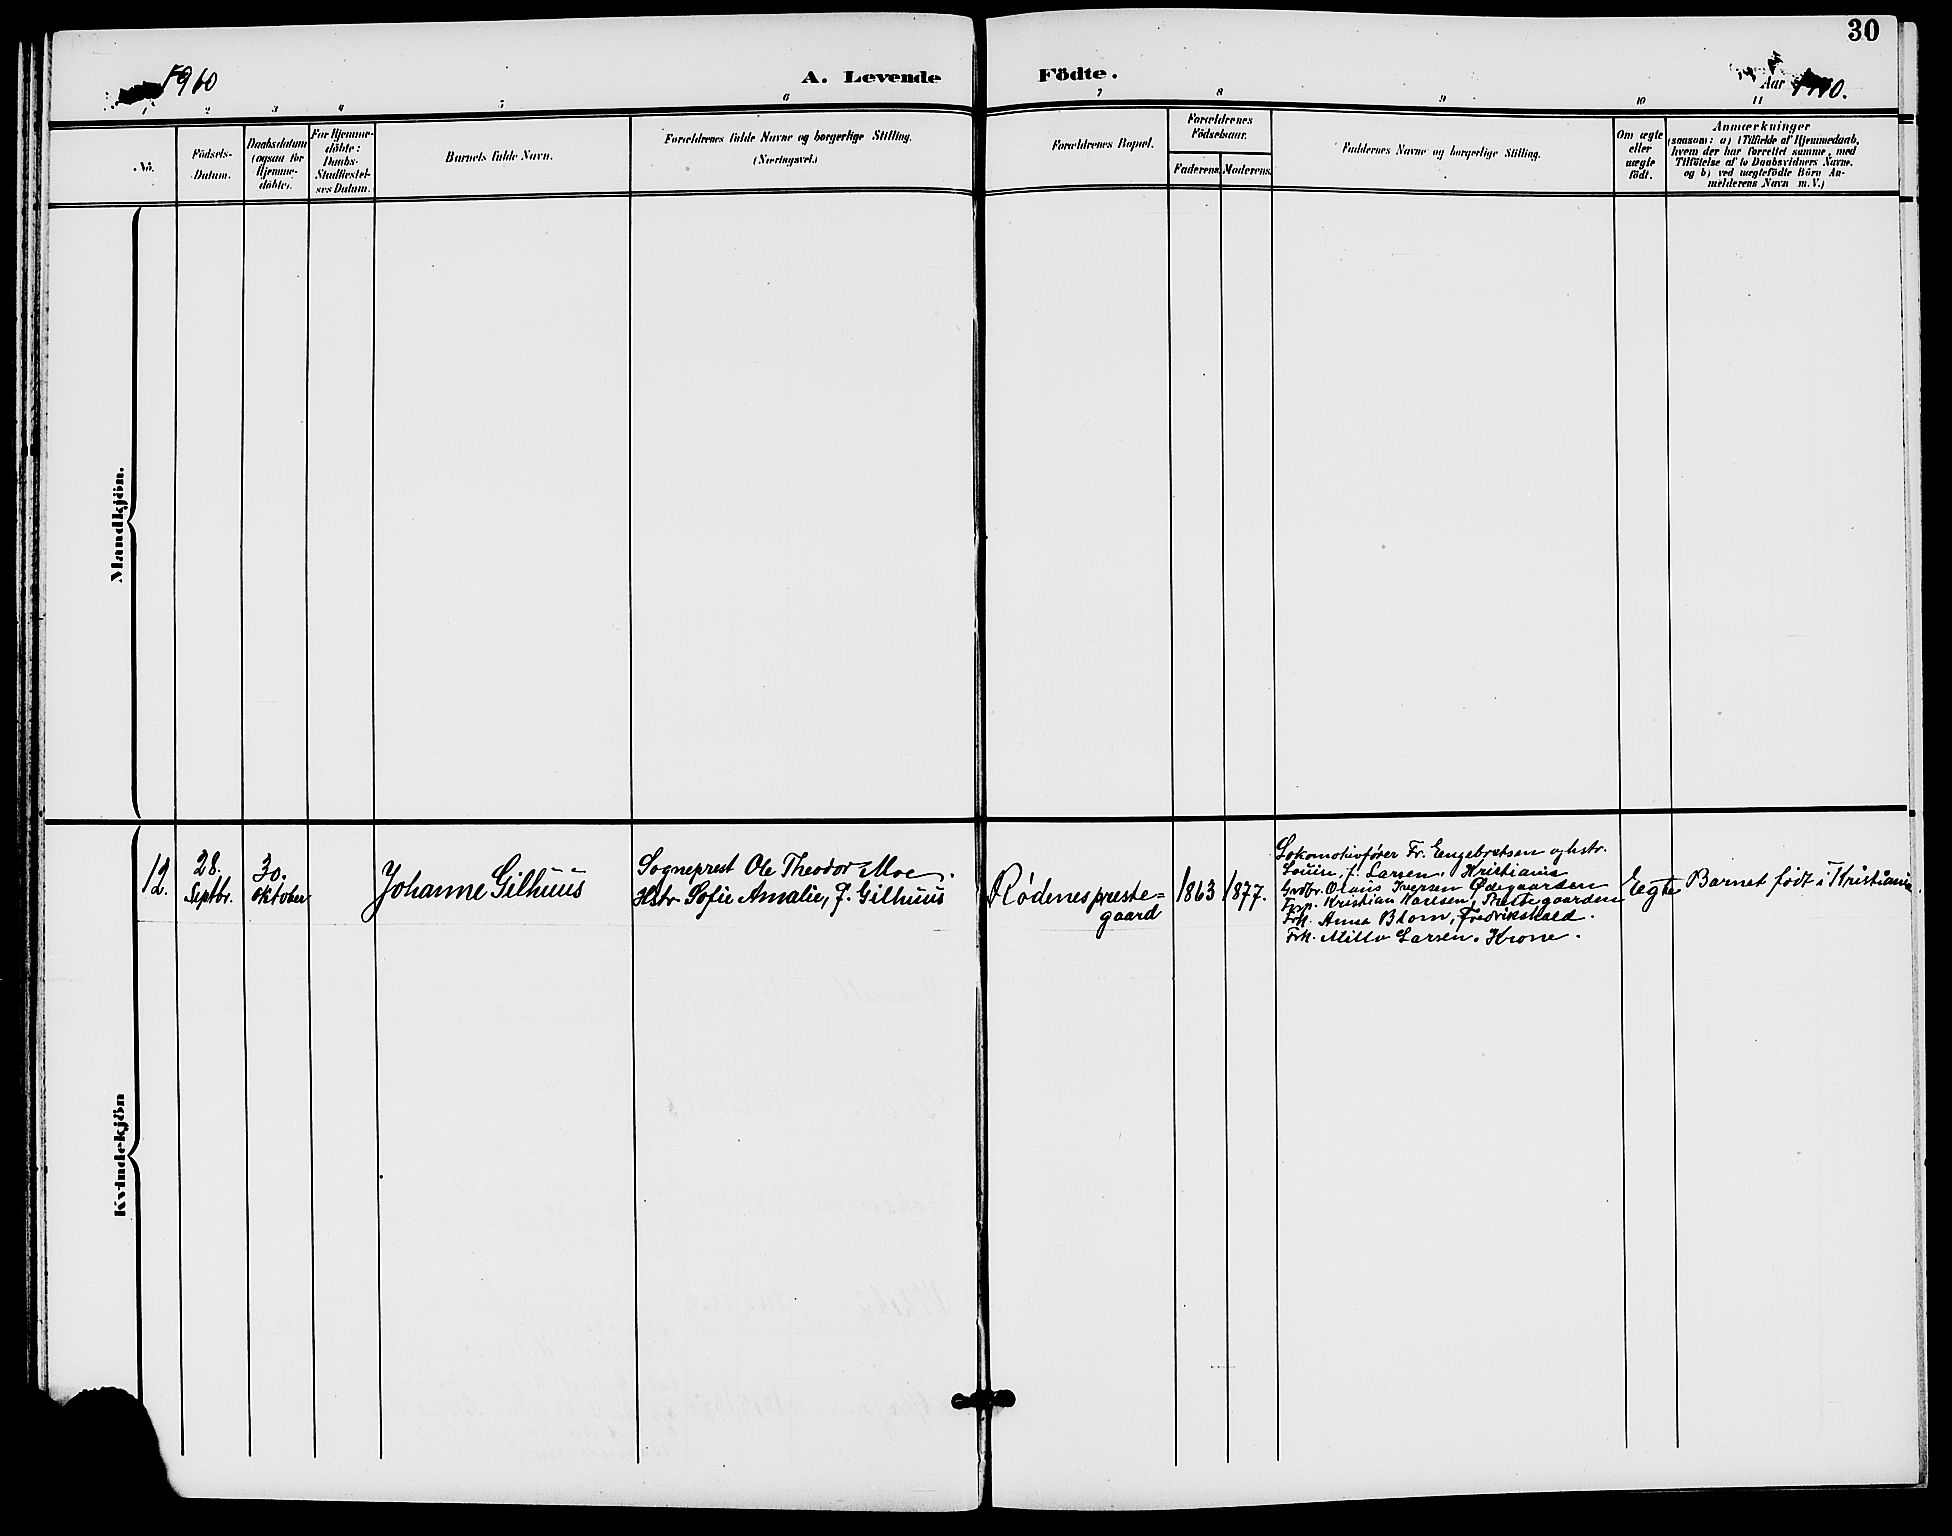 30
A. Levende Födte.
Aar
1 2 3 4 5 6 7 8 9 10 11
No.
Födsels-
Datum.
Daabsdatum
(ogsaa for
Hjemme-
döbte).
For Hjemme-
döbte:
Daabs-
Stadfæstel-
ses Datum.
Barnets fulde Navn.
Forældrenes fulde Navne og borgerlige Stilling.
(Næringsvei.)
Forældrenes Bopæl.
Forældrenes
Födselsaar.
Faderens. Moderens.
Faddernes Navne og borgerlige Stilling.
Om ægte
eller
uægte
födt.
Anmærkninger
(saasom: a) i Tilfælde af Hjemmedaab,
hvem der har forrettet samme, med
Tilföielse af to Daabsvidners Navne.
og b) ved uægtefödte Börn An-
melderens Navn m.V.)
Mandkjön.
Kvindekjön
12.
28.
Septbr.
30.
oktober
Johanne Gilhuus
Sogneprest Ole Theodor Moe.
Hstr Sofie Amalie, f. Gilhuus
Rødenes preste=
gaard
1863
1877.
Lokomotivfører Fr. Engebretsen og hstr.
f. Larsen. Kristiania
Grdbr. Olaus Iversen Ødegaarden
Kristian
Frk. Anna Blom, Fredrikshald.
Frk. Milla Larsen. Krone.
Eegte
Barnet født i Kristiania.